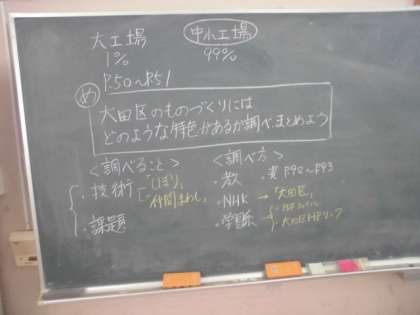 大工場 中小工場
1% 99%
P.50~P.51
め
大田区のものづくりには
どのような特色があるか調べまとめよう
<調べること> <調べ方>
・技術「しぼり」
「仲間まわし」
・教 ・資 P.92~P.93
・NHK →「大田区」
・課題
・学習 →
大田区HPリンク